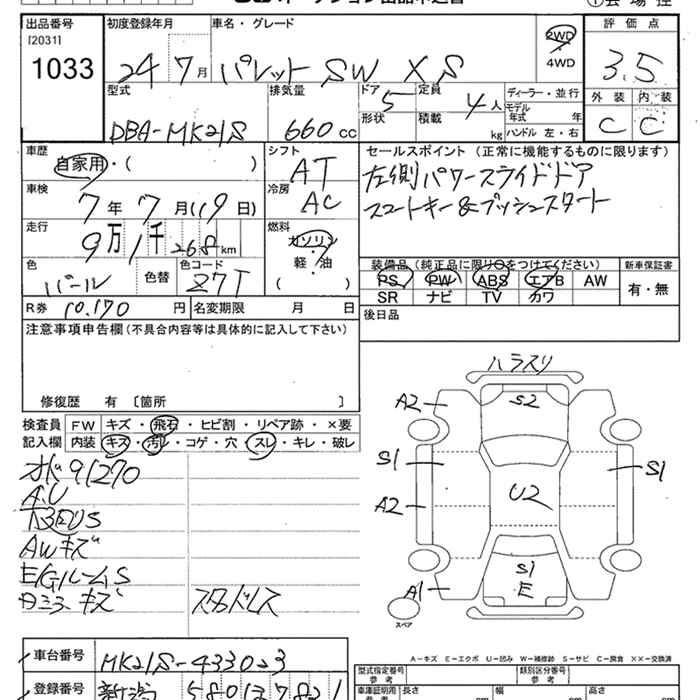 出品番号 初度登録年月 車名・グレード 評価点
[2031]
1033
24 7月 パレット SW XS 2WD 4WD 3.5
型式 排気量 ドア 定員 ディーラー・並行 外装 内装
DBA-MK21S 660cc 5 4人 モデル年式 年 C C
形状 積載 kg ハンドル 左・右
車歴 シフト セールスポイント (正常に機能するものに限ります)
自家用・( ) AT 左側パワースライドドア
車検 冷房 スマートキー&プッシュスタート
7年7月(19日) AC
走行 燃料
9万1千268km ガソリン
軽・油
( )
色 色替 色コード 装備品 (純正品に限り○をつけてください) 新車保証書
パール Z7T PS PW ABS エアB AW 有・無
SR ナビ TV カワ
R券 10,170円 名変期限 月 日 後日品
注意事項申告欄(不具合内容等は具体的に記入して下さい)
修復歴 有 〔箇所 〕
検査員 FW キズ・飛石・ヒビ割・リペア跡・×要
記入欄 内装 キズ・汚レ・コゲ・穴・スレ・キレ・破レ
91270
A.U
下廻りS
AWキズ
E/GルームS
キズ スタッドレス
ハラスリ
A2 S2
S1 S1
A2 U2
S1
A1 E
スペア
A-キズ E-エクボ U-凹み W-補修跡 S-サビ C-腐食 ××-交換済
車台番号 MK21S-433023
型式指定番号 参考 類別区分番号 参考
登録番号 新潟 580 ひ 7821
車庫証明用 長さ 幅 高さ